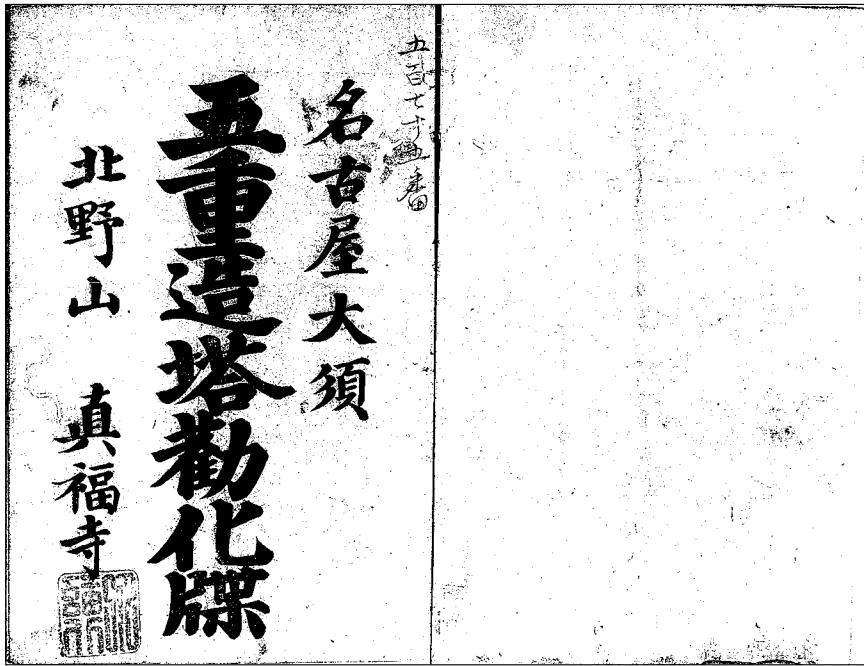 五百七十五番
名古屋大須
五重造塔勸化牒
北野山　真福寺